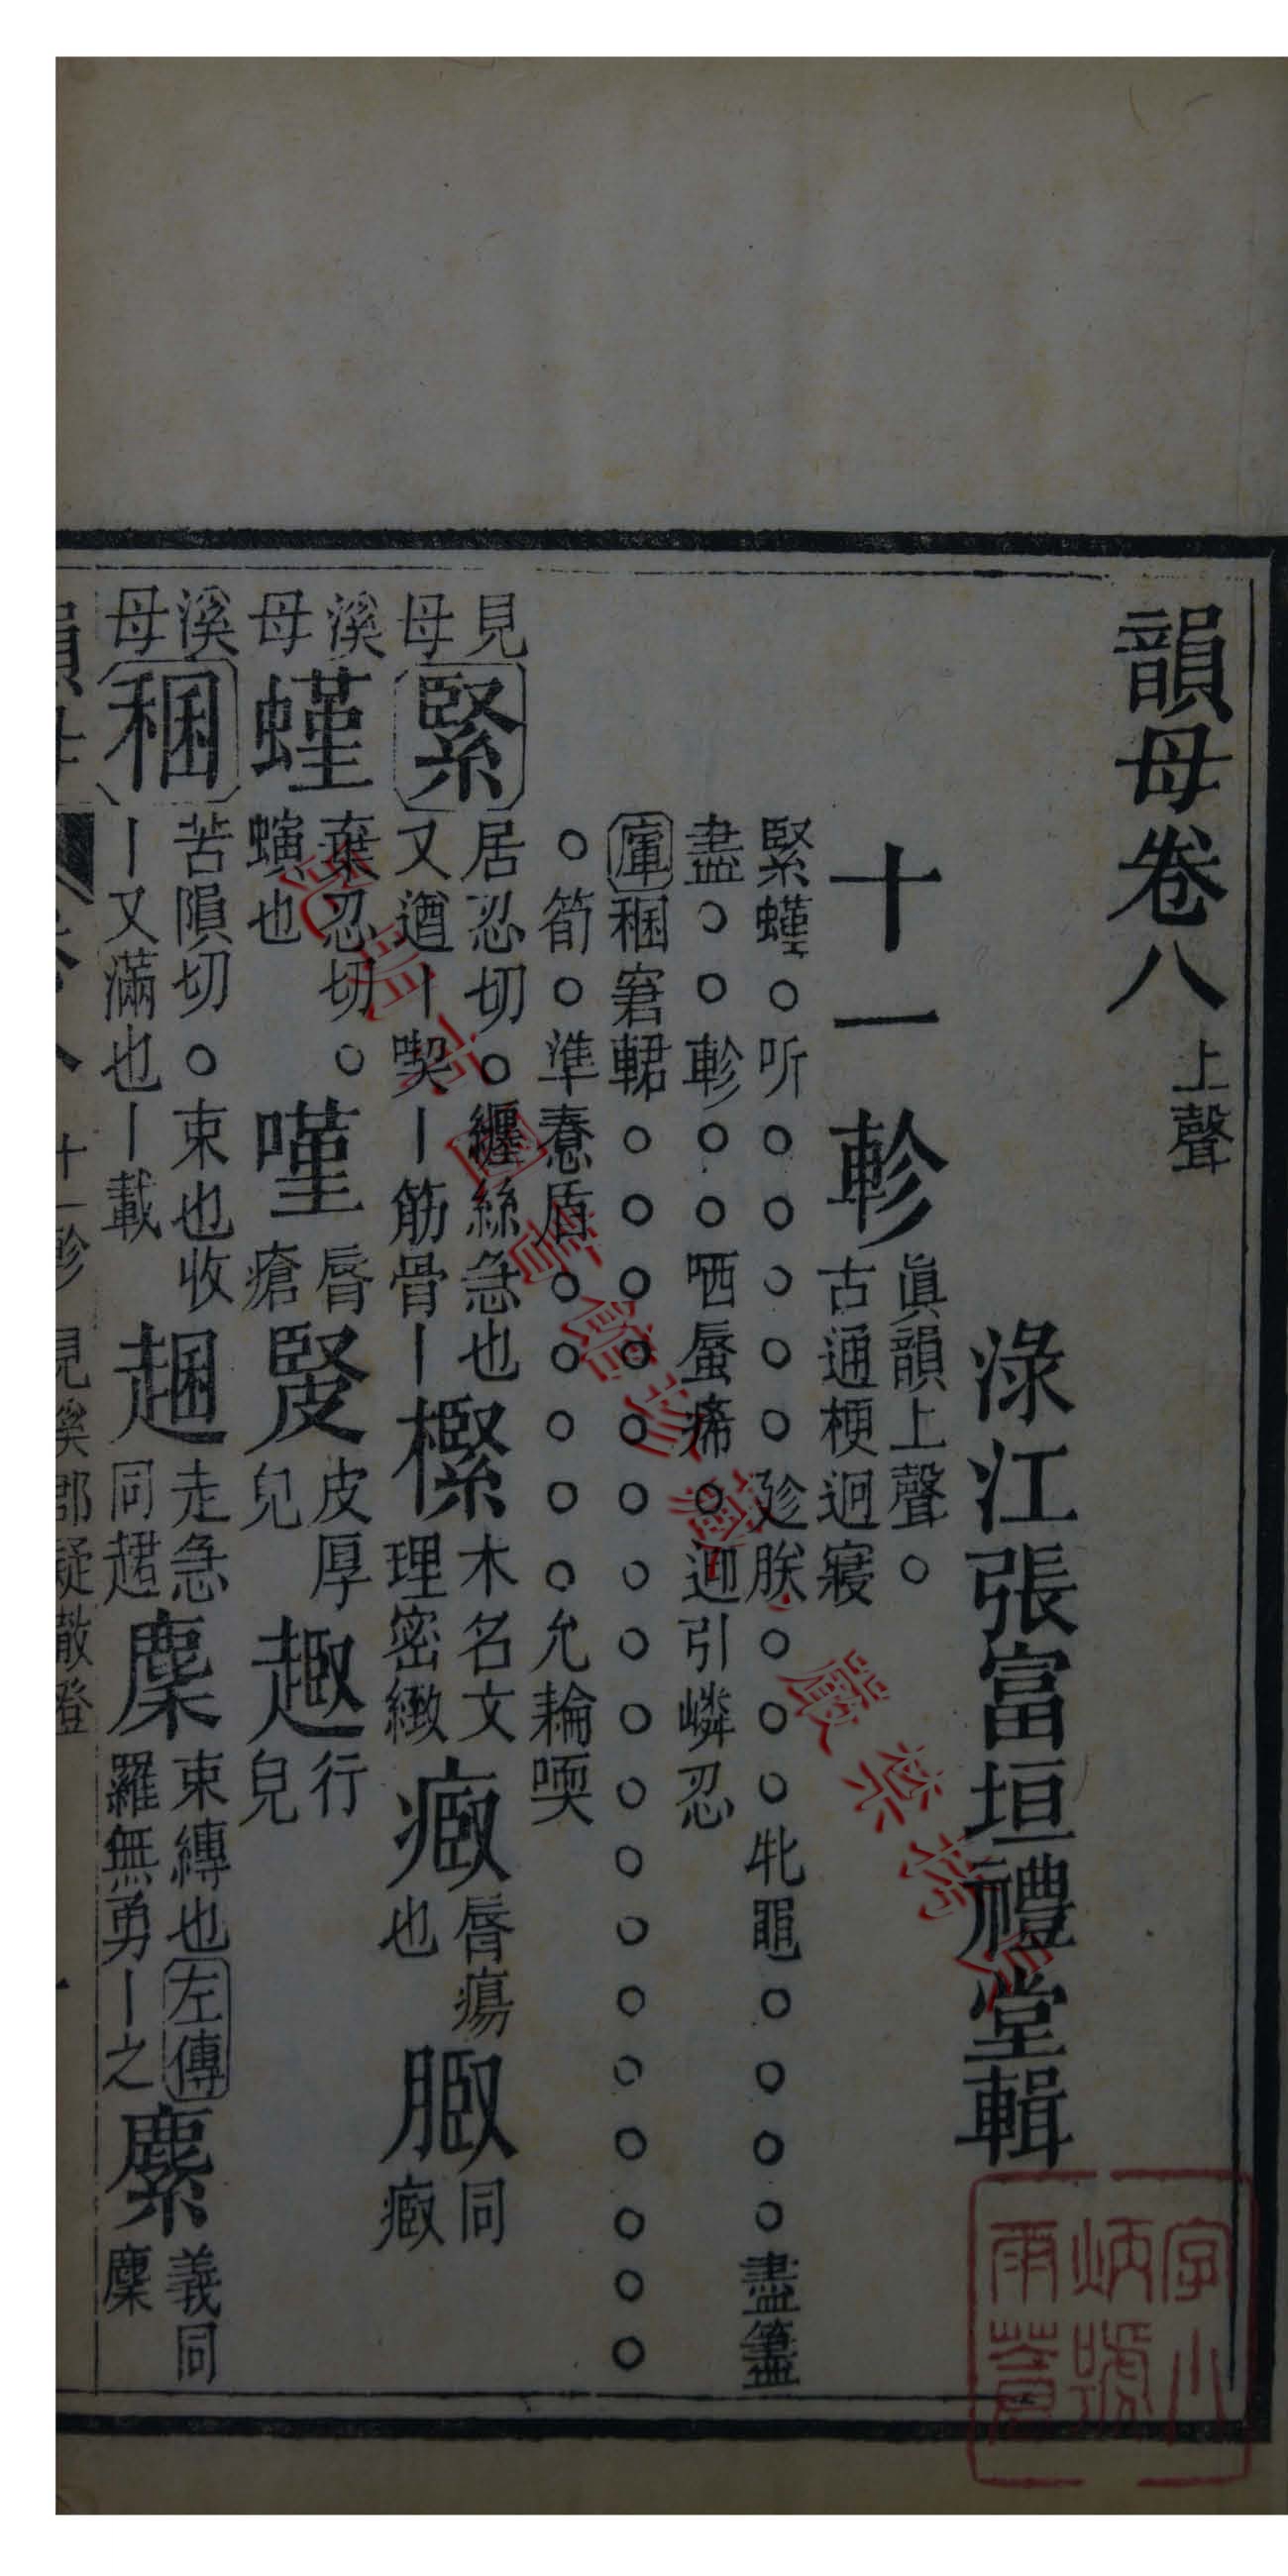 韻母卷八 上聲
淥江張富垣禮堂輯
十一軫 眞韻上聲。古通梗迥寢
緊螼○听○○○○○趁朕○○○牝黽○○○○盡𧗁
盡○○軫○○哂蜃㾕○𨒫引嶙忍
𢈈稇窘輑○○○○○○○○○○○○○○○○○○
○筍○準惷盾○○○○○允耣㖱
見母 緊 居忍切。纏絲急也又遒丨喫丨筋骨丨 檕 木名文理密緻 㾙 脣瘍也 䐜 同㾙
溪母 螼 棄忍切。螾也 㗲 脣瘡 㿏 皮厚皃 趣 行皃
溪母 稇 苦隕切。束也收丨又滿也丨載 䞿 走急同趣 麇 束縛也左傳羅無勇丨之 麋 義同麇
韻母 卷八 十一軫 見溪郡疑徹澄 一